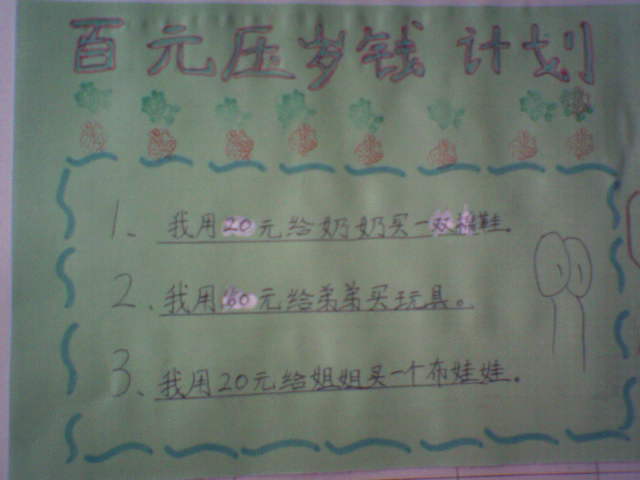 百元压岁钱计划
1、我用20元给奶奶买一双棉鞋。
2、我用60元给弟弟买玩具。
3、我用20元给姐姐买一个布娃娃。